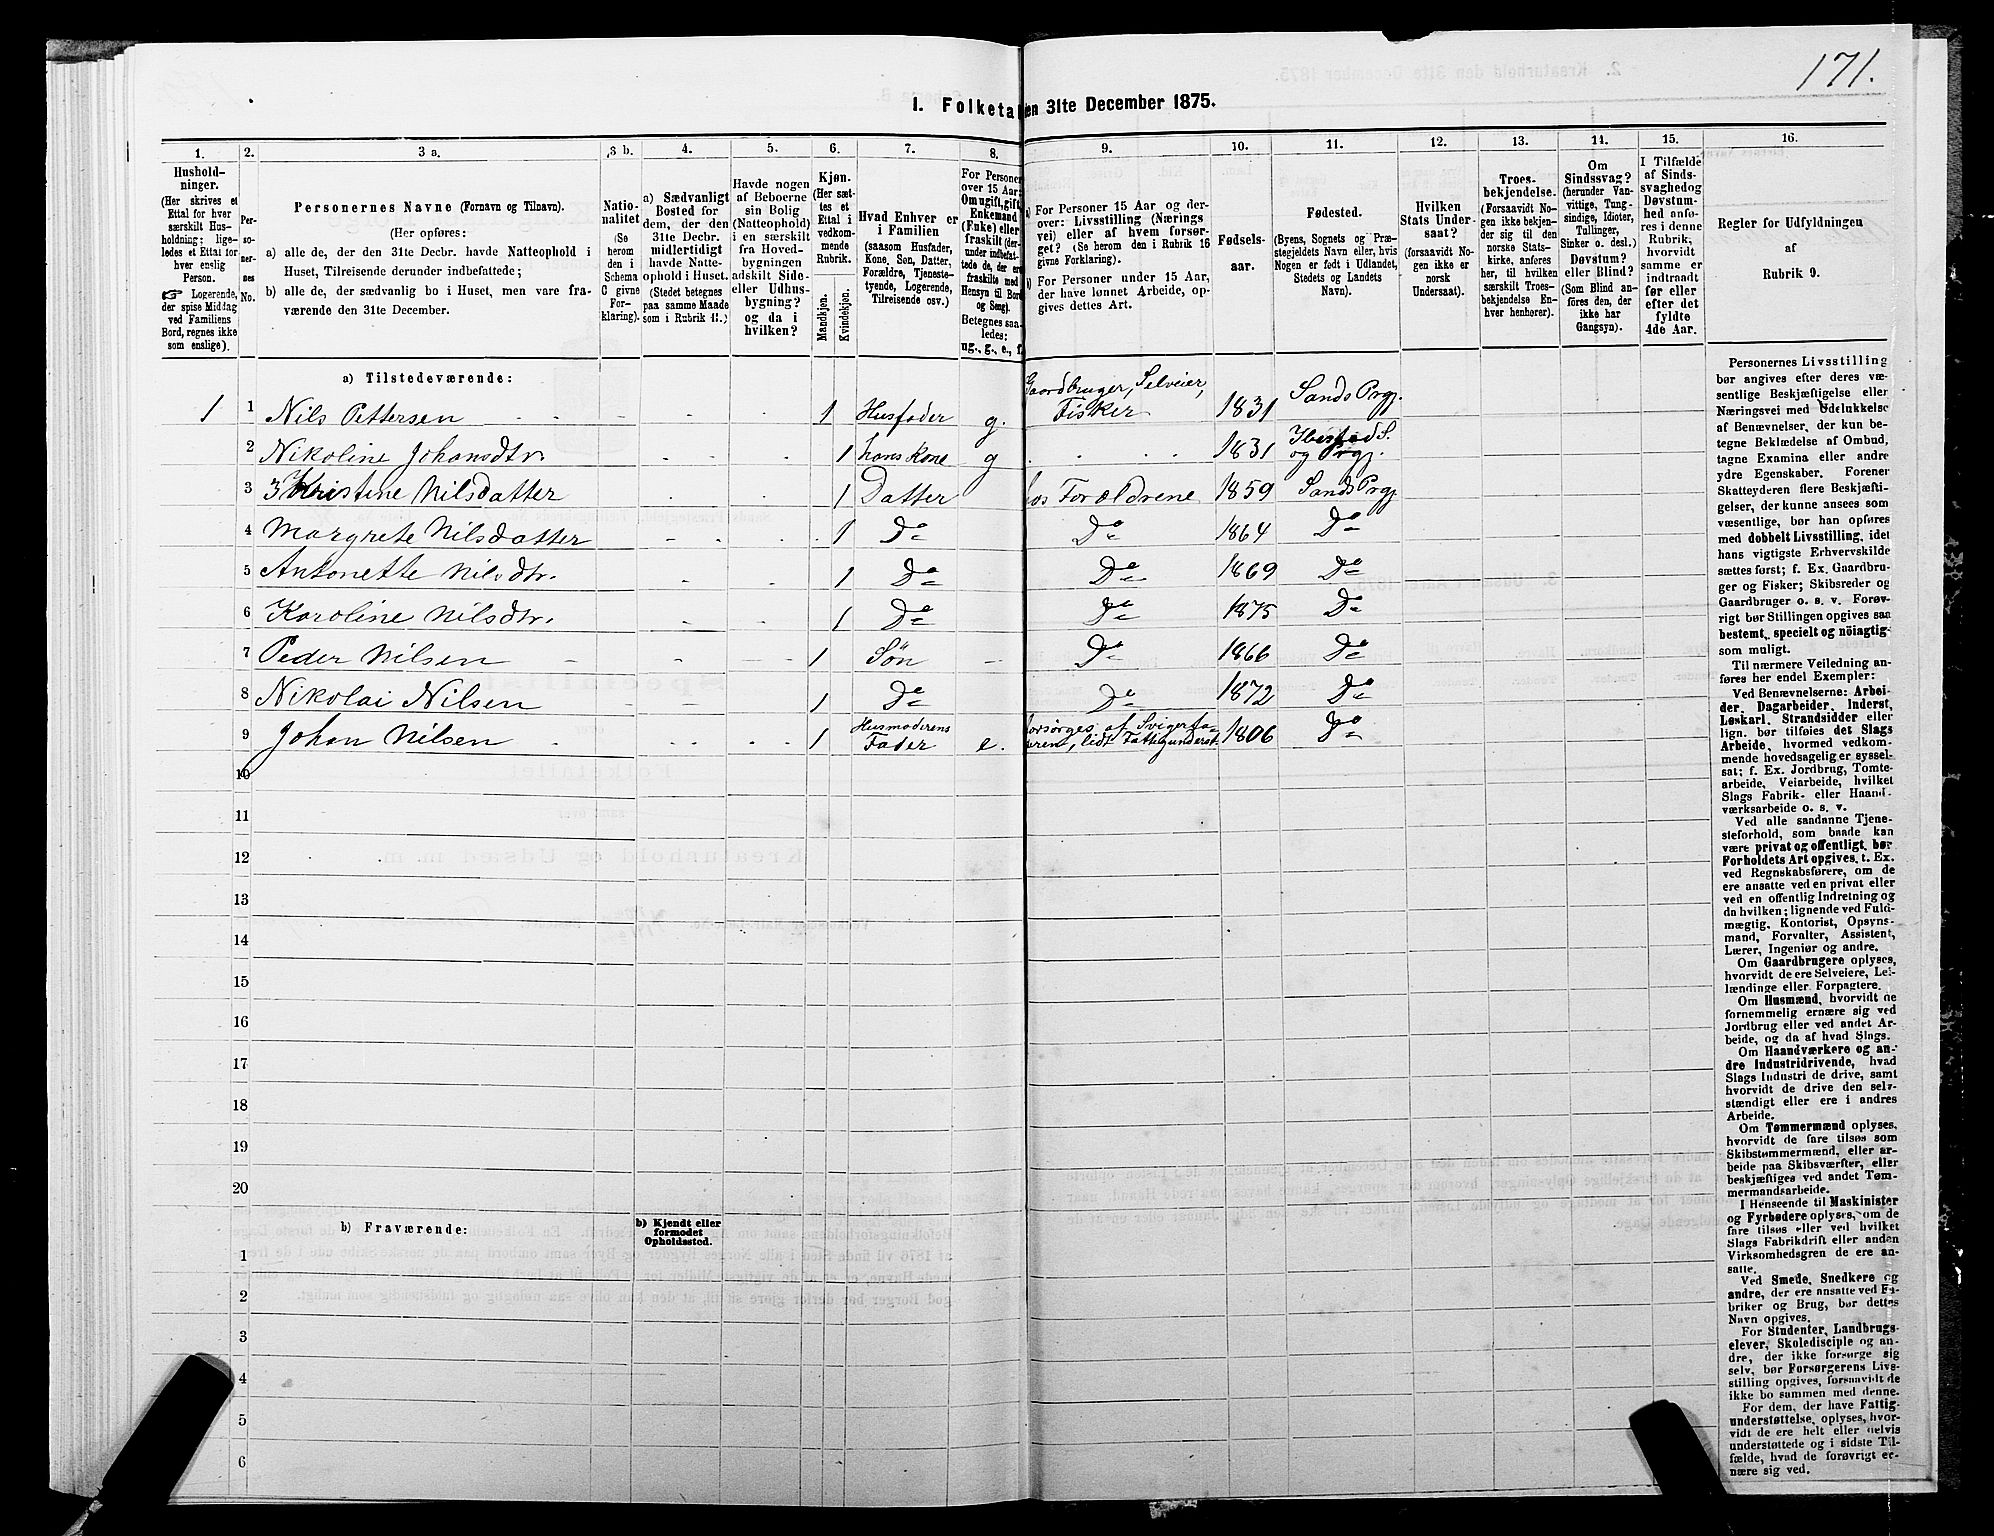 171.
1. Folketa
en 31te December 1875.
1.
2.
3 a.
3 b.
4.
5.
6.
7.
8.
9.
10.
11.
12.
13.
14.
15.
16.
Hushold-
ninger.
(Her skrives et
Ettal for hver
særskilt Hus-
holdning; lige-
ledes et Ettal for
hver enslig
Person.
☞ Logerende,
der spise Middag
ved Familiens
Bord, regnes ikke
som enslige).
Per-
so-
ner-
nes
No.
Personernes Navne (Fornavn og Tilnavn).
(Her opføres:
a) alle de, der den 31te Decbr. havde Natteophold i
Huset, Tilreisende derunder indbefattede;
b) alle de, der sædvanlig bo i Huset, men vare fra-
værende den 31te December.
Natio-
nalitet
(Se
herom
den i
Schema
C givne
For-
klaring).
a) Sædvanligt
Bosted for
dem, der den
31te Decbr.
midlertidigt
havde Natte-
ophold i Huset.
(Stedet betegnes
paa samme Maade
som i Rubrik 11.)
Havde nogen
af Beboerne
sin Bolig
(Natteophold)
i en særskilt
fra Hoved-
bygningen
adskilt Side-
eller Udhus-
bygning?
og da i
hvilken?
Kjøn.
(Her sæt-
tes et
Ettal i
vedkom-
mende
Rubrik.
Mandkjøn.
Kvindekjøn.
Hvad Enhver er
i Familien
(saasom Husfader,
Kone, Søn, Datter,
Forældre, Tjeneste-
tyende, Logerende,
Tilreisende osv.)
For Personer
over 15 Aar:
Om ugift, gift,
Enkemand
(Enke) eller
fraskilt (der-
under indbefat-
tede de, der ere
fraskilte med
Hensyn til Bord
og Seng).
Betegnes saa-
ledes:
ug., g., e., f.
a) For Personer 15 Aar og der-
over: Livsstilling (Nærings
vei) eller af hvem forsør-
get? (Se herom den i Rubrik 16
givne Forklaring).
b) For Personer under 15 Aar,
der have lønnet Arbeide, op-
gives dettes Art.
Fødsels-
aar.
Fødested.
(Byens, Sognets og Præ-
stegjeldets Navn eller, hvis
Nogen er født i Udlandet,
Stedets og Landets
Navn).
Hvilken
Stats Under-
saat?
(forsaavidt No-
gen ikke er
norsk
Undersaat).
Troes-
bekjendelse.
(Forsaavidt No-
gen ikke bekjen-
der sig til den
norske Stats-
kirke, anføres
her, til hvilken
særskilt Troes-
bekjendelse En-
hver henhører).
Om
Sindssvag?
(herunder Van-
vittige, Tung-
sindige, Idioter,
Tullinger,
Sinker o. desl.)
Døvstum?
eller Blind?
(Som Blind an-
føres den, der
ikke har
Gangsyn).
I Tilfælde
af Sinds-
svaghedog
Døvstum-
hed anfø-
res i denne
Rubrik,
hvorvidt
samme er
indtraadt
før eller
efter det
fyldte
4de Aar.
Regler for Udfyldningen
af
Rubrik 9.
a) Tilstedeværende:
1 1 Nils Pettersen 1 Husfader g. Gaardbruger, Selveier, Fisker 1831 Sands Prgj.
2 Nikoline Johansdtr. 1 hans Kone g 1831 Ibestad S. og Prgj.
3 Kristine Nilsdatter 1 Datter hos Forældrene 1859 Sands Prgj
4 Margrete Nilsdatter 1 Do Do 1864 Do
5 Antonette Nilsdtr. 1 Do Do 1869 Do
6 Karoline Nilsdtr. 1 Do Do 1875 Do
7 Peder Nilsen 1 Søn Do 1866 Do
8 Nikolai Nilsen 1 Do Do 1872 Do
9 Johan Nilsen 1 Husmoderens Fader e. forsørges af Svigerfa- eren, lidt Fattigunderst. 1806 Do
10
11
12
13
14
15
16
17
18
19
20
b) Fraværende:
b) Kjendt eller
formodet
Opholdssted.
1
2
3
4
5
6
Personernes Livsstilling
bør angives efter deres væ-
sentlige Beskjæftigelse eller
Næringsvei med Udelukkelse
af Benævnelser, der kun be-
tegne Beklædelse af Ombud,
tagne Examina eller andre
ydre Egenskaber. Forener
Skatteyderen flere Beskjæfti-
gelser, der kunne ansees som
væsentlige, bør han opføres
med dobbelt Livsstilling, idet
hans vigtigste Erhvervskilde
sættes først; f. Ex. Gaardbru-
ger og Fisker; Skibsreder og
Gaardbruger o. s. v. Forøv-
rigt bør Stillingen opgives saa
bestemt, specielt og nöiagtig
som muligt.
Til nærmere Veiledning an-
føres her endel Exempler:
Ved Benævnelserne: Arbei-
der, Dagarbeider, Inderst,
Løskarl, Strandsidder eller
lign. bør tilføies det Slags
Arbeide, hvormed vedkom-
mende hovedsagelig er syssel-
sat; f. Ex. Jordbrug, Tomte-
arbeide, Veiarbeide, hvilket
Slags Fabrik- eller Haand-
værksarbeide o. s. v.
Ved alle saadanne Tjene-
steforhold, som baade kan
være privat og offentligt, bør
Forholdets Art opgives, t. Ex.
ved Regnskabsførere, om de
ere ansatte ved en privat eller
ved en offentlig Indretning og
da hvilken; lignende ved Fuld-
mægtig, Kontorist, Opsyns-
mand, Forvalter, Assistent,
Lærer, Ingeniør og andre.
Om Gaardbrugere oplyses,
hvorvidt de ere Selveiere, Lei-
lændinge eller Forpagtere.
Om Husmænd, hvorvidt de
fornemmelig ernære sig ved
Jordbrug eller ved andet Ar-
beide, og da af hvad Slags.
Om Haandværkere og an-
dre Industridrivende, hvad
Slags Industri de drive, samt
hvorvidt de drive den selv-
stændigt eller ere i andres
Arbeide.
Om Tømmermænd oplyses,
hvorvidt de fare tilsøs som
Skibstømmermænd, eller ar-
beide paa Skibsværfter, eller
beskjæftiges ved andet Tøm-
mermandsarbeide.
I Henseende til Maskinister
og Fyrbødere oplyses, om de
fare tilsøs eller ved hvilket
Slags Fabrikdrift eller anden
Virksomhedsgren de ere an-
satte.
Ved Smede, Snedkere og
andre, der ere ansatte ved Fa-
briker og Brug, bør dettes
Navn opgives.
For Studenter, Landbrugs-
elever, Skoledisciple og an-
dre, der ikke forsørge sig
selv, bør Forsørgerens Livs-
stilling opgives, forsaavidt de
ikke bo sammen med denne.
For dem, der have Fattig-
understøttelse, oplyses, hvor-
vidt de ere helt eller delvis
understøttede og i sidste Til-
fælde, hvad de forøvrigt er-
nære sig ved.